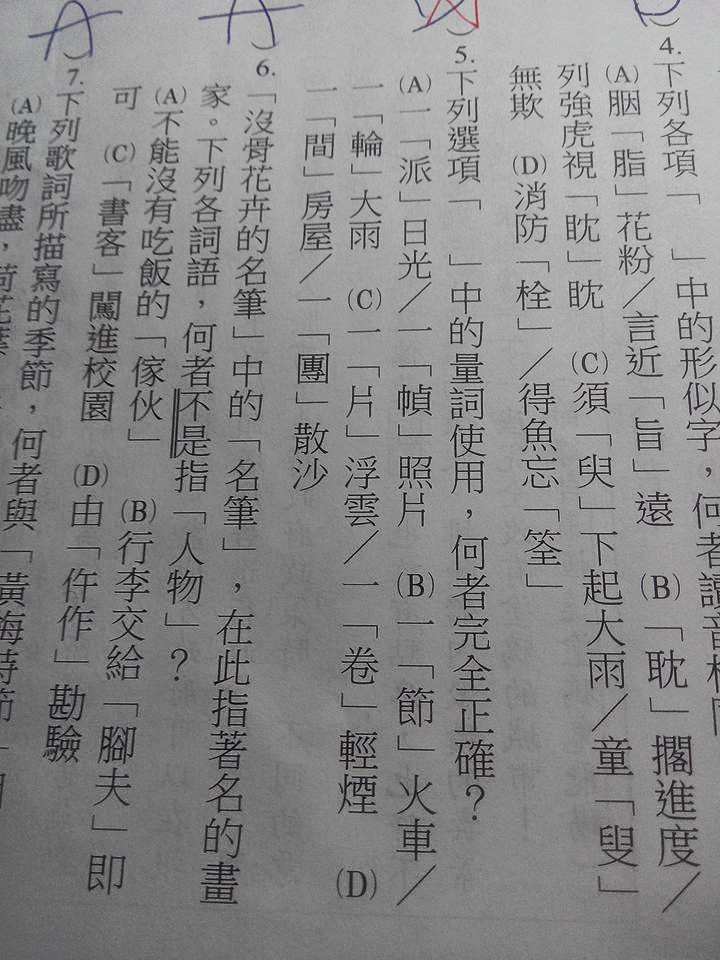 4.下列各項「　」中的形似字，何者讀音相
(A)胭「脂」花粉／言近「旨」遠　(B)「耽」擱進度／
列強虎視「眈」眈　(C)須「臾」下起大雨／童「叟」
無欺　(D)消防「栓」／得魚忘「筌」
5.下列選項「　」中的量詞使用，何者完全正確？
(A)一「派」日光／一「幀」照片　(B)一「節」火車／
一「輪」大雨　(C)一「片」浮雲／一「卷」輕煙　(D)
一「間」房屋／一「團」散沙
A）6.「沒骨花卉的名筆」中的「名筆」，在此指著名的畫
家。下列各詞語，何者不是指「人物」？
(A)不能沒有吃飯的「傢伙」　(B)行李交給「腳夫」即
可　(C)「書客」闖進校園　(D)由「仵作」勘驗
A）7.下列歌詞所描寫的季節，何者與「黃梅時節」
(A)晚風吻盡，荷花葉